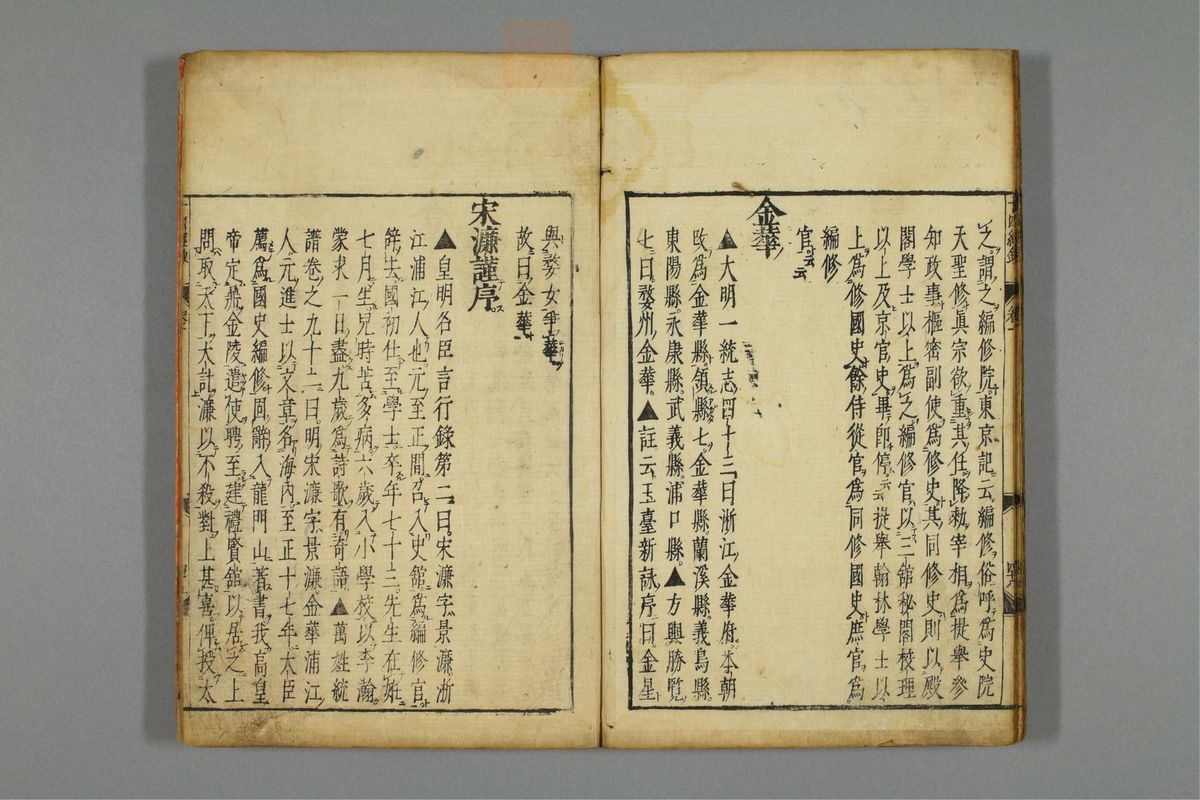 之謂之編修院東京記云編修俗呼爲史院
天聖修眞宗欲重其任降敕宰相爲提舉參
知政事樞密副使爲修史其同修史則以殿
閣學士以上爲之編修官以三館秘閣校理
以上及京官史畢卽停云云提舉翰林學士以
上爲修國史餘侍從官爲同修國史庶官爲
編修
官云云
金華
▲大明一統志四十三曰浙江金華府本朝
改爲金華縣領縣七金華縣蘭溪縣義烏縣
東陽縣永康縣武義縣浦口縣▲方輿勝覽
七曰婺州金華▲註云玉臺新詠序曰金星
與婺女爭華
故曰金華
宋濂謹序
▲皇明名臣言行錄第二曰宋濂字景濂浙
江浦江人也元至正間召入史館爲編修官
辭去國初仕至學士卒年七十三先生在姙
七月生兒時苦多病六歲入小學校以李瀚
蒙求一日盡九歲爲詩歌有奇語▲萬姓統
譜卷之九十二曰明宋濂字景濂金華浦江
人元進士以文章名海內至正十七年大臣
薦爲國史編修固辭入龍門山著書我高皇
帝定鼎金陵遣使聘至建禮賢館以居之上
問取天下大計濂以不殺對上甚喜俾授太